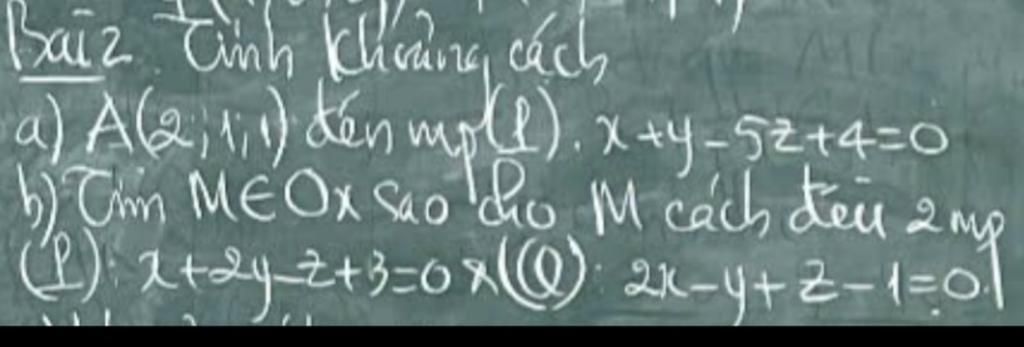 Bài 2 Tính khoảng cách
a) A(2;1;1) đến mp(P). x+y-5z+4=0
b) Tìm M∈Ox sao cho M cách đều 2 mp
(P): x+2y-z+3=0 & (Q): 2x-y+z-1=0.